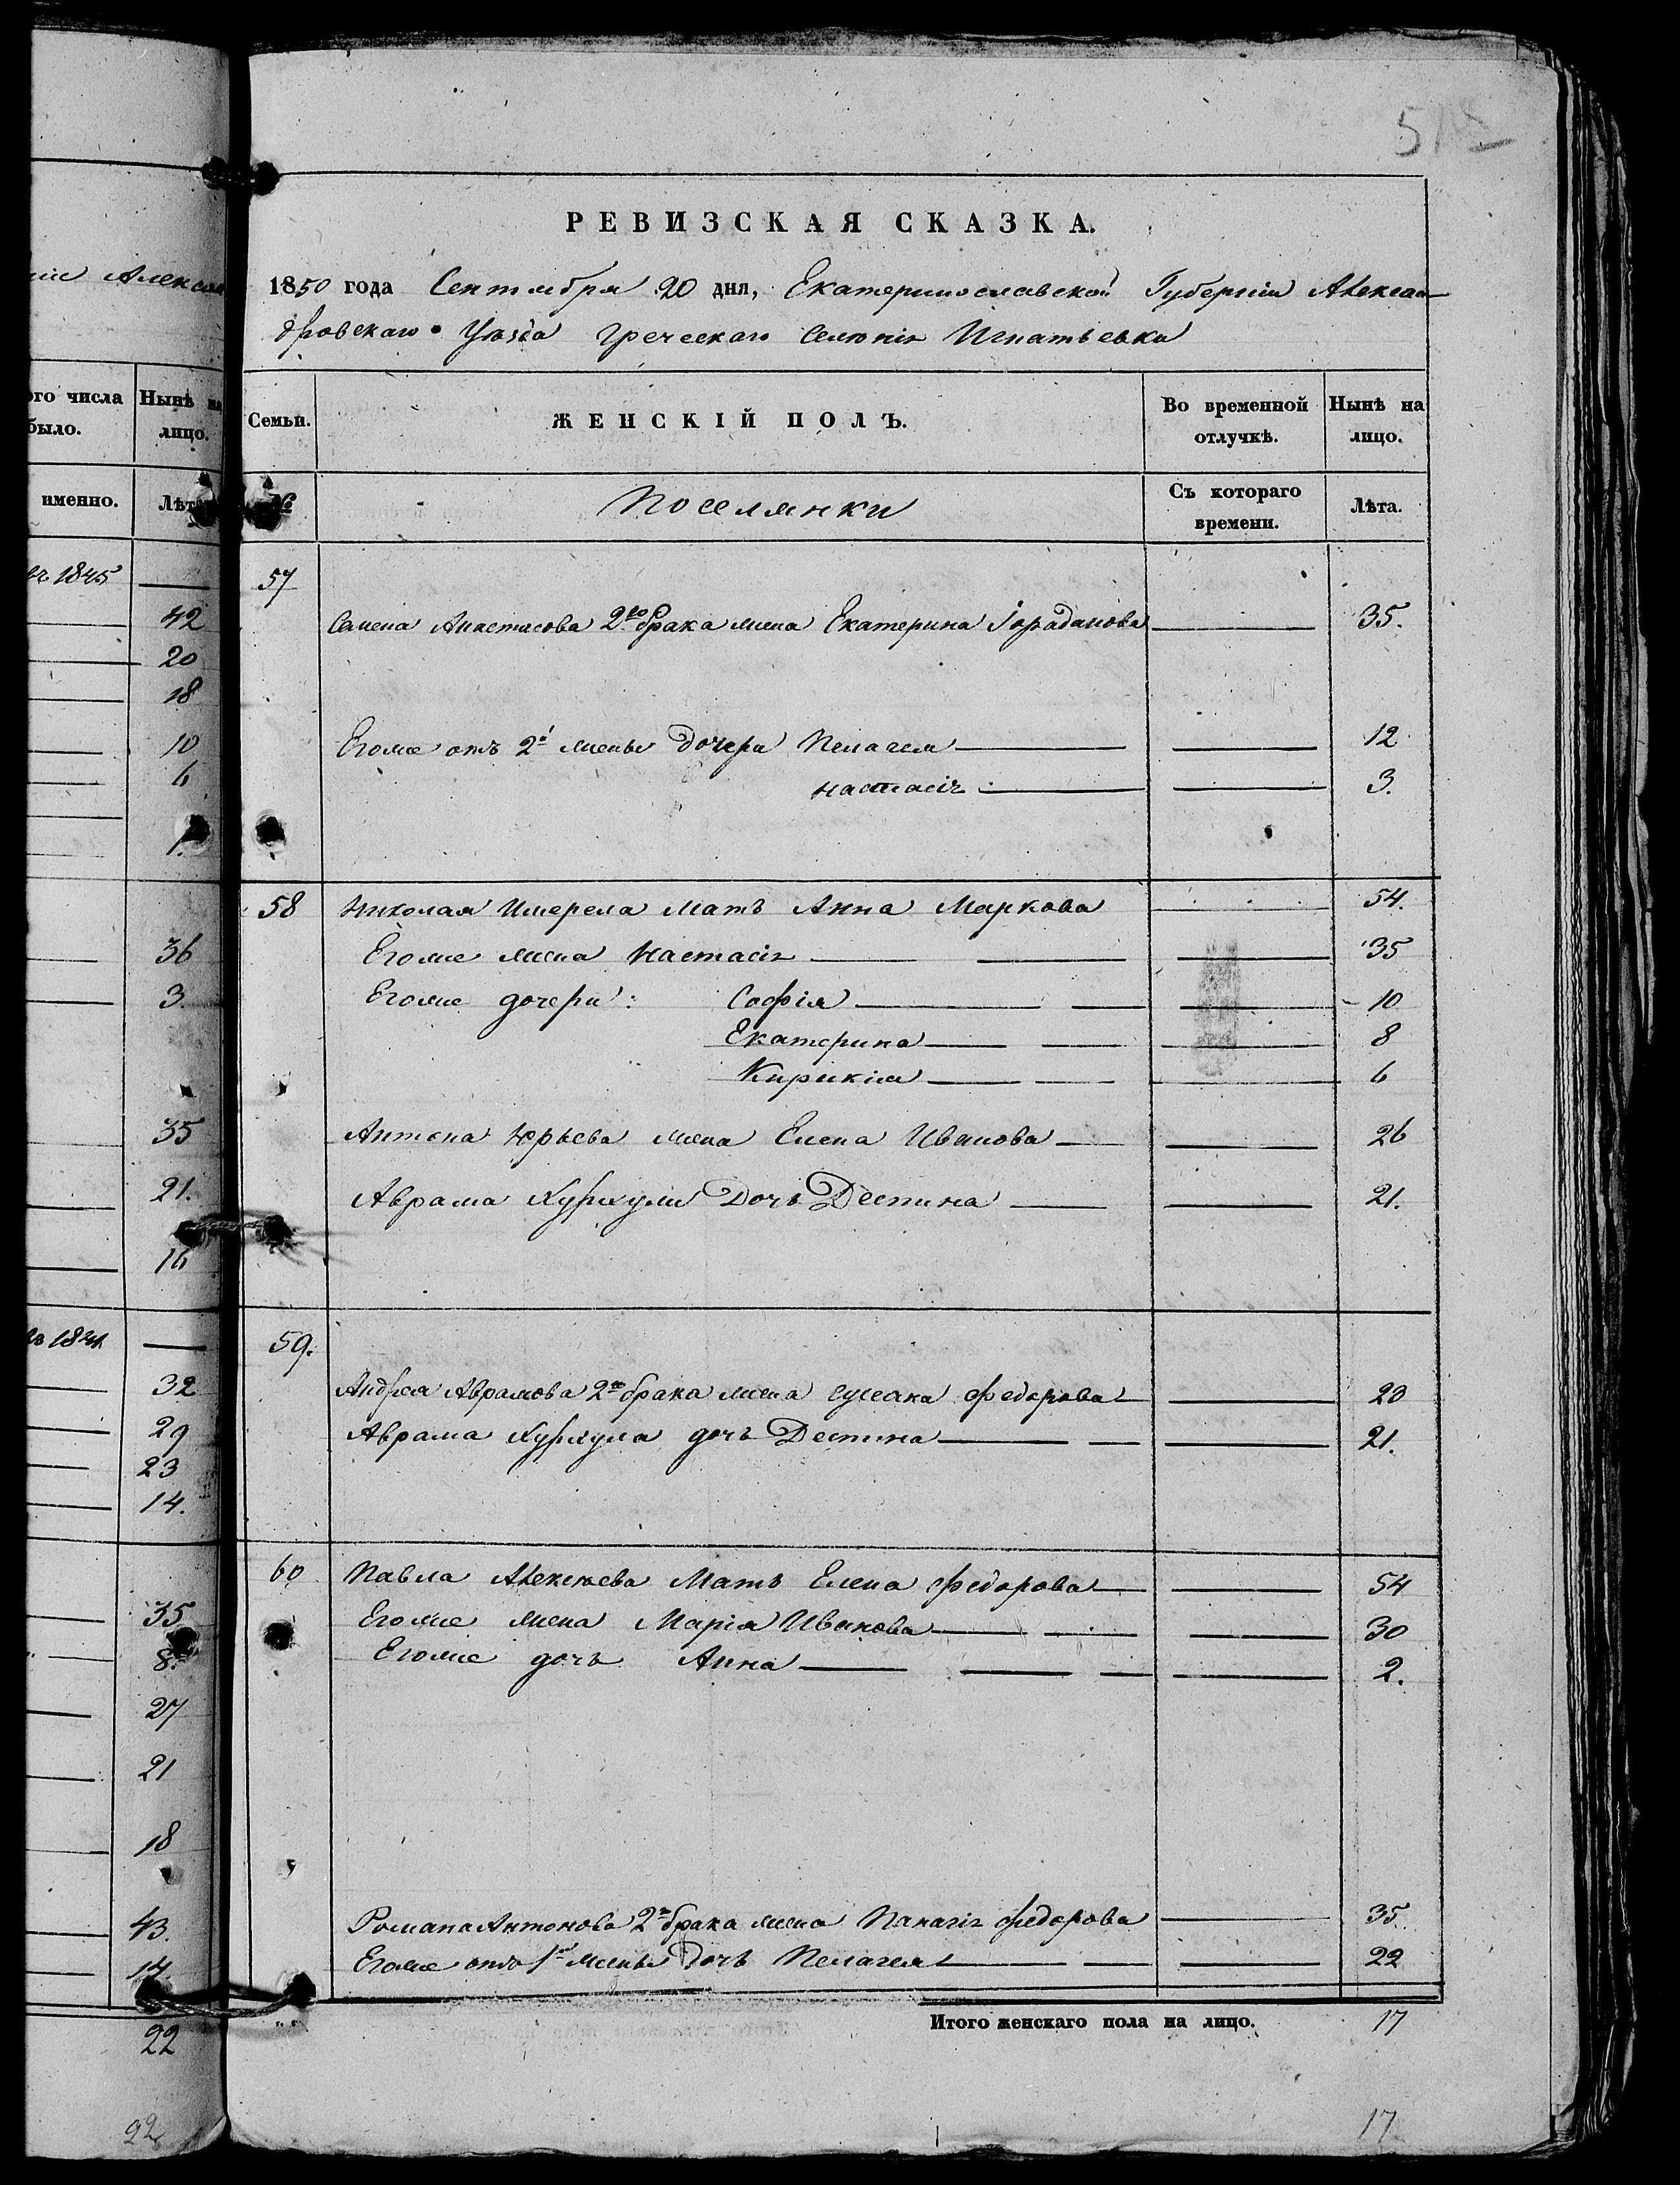 РЕВИЗСКАЯ СКАЗКА.
1850 года Сентября 20 дня, Екатеринославской Губерніи Алексан-
дровскаго Уѣзда Греческаго Селенія Игнатьевки
Алексан
ого числа
было.
Нынѣ на
лицо.
Семьи.
ЖЕНСКІЙ ПОЛЪ.
Во временной
отлучкѣ.
Нынѣ на
лицо.
именно.
Лѣта
№
Поселянки
Съ котораго
времени.
Лѣта.
1845
57
42
Семена Анастасова 2го брака жена Екатерина Іорданова 35.
20
18
10
Егоже отъ 2й жены дочери Пелагея 12
6
Настасія 3.
1.
58 Николая Имерела Мать Анна Маркова 54.
36
Егоже жена Настасія 35
3.
Егоже дочери: Софія 10
Екатерина 8
Кирикія 6
35
Антона Юрьева жена Елена Иванова 26
21.
Аврама Дочь Деспина 21.
16
1841
59.
32
Андрея Аврамова 2го брака жена Сусана Федорова 20
29
Аврама дочь Деспина 21.
23
14.
60 Павла Алексѣева Мать Елена Федорова 54
35
Егоже жена Марія Иванова 30
8.
Егоже дочь Анна 2.
27
21
18
43.
Романа Антонова 2го брака жена Панагія Федорова 35.
14.
Егоже отъ 1й жены Дочь Пелагея 22
22
Итого женскаго пола на лицо. 17
22
17